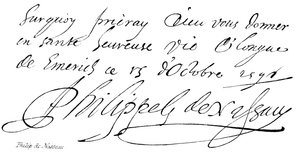 prieray Dieu vous donner
en sante heureuse vie & longue
de Emerick ce 15 d'Octobre
Philippe de Nassau
Philip de Nassau